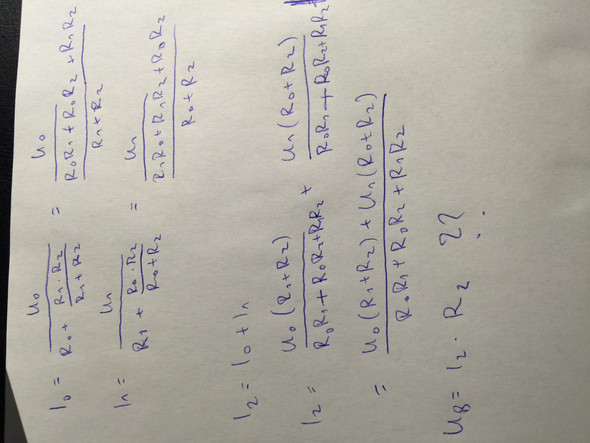 I₀ = U₀ / (R₀ + (R₁ · R₂)/(R₁ + R₂)) = U₀ / ((R₀R₁ + R₀R₂ + R₁R₂)/(R₁ + R₂))
I₁ = U₁ / (R₁ + (R₀ · R₂)/(R₀ + R₂)) = U₁ / ((R₁R₀ + R₁R₂ + R₀R₂)/(R₀ + R₂))
I₂ = I₀ + I₁
I₂ = U₀(R₁+R₂) / (R₀R₁ + R₀R₂ + R₁R₂) + U₁(R₀+R₂) / (R₀R₁ + R₀R₂ + R₁R₂)
= (U₀(R₁+R₂) + U₁(R₀+R₂)) / (R₀R₁ + R₀R₂ + R₁R₂)
U_B = I₂ · R₂ ??